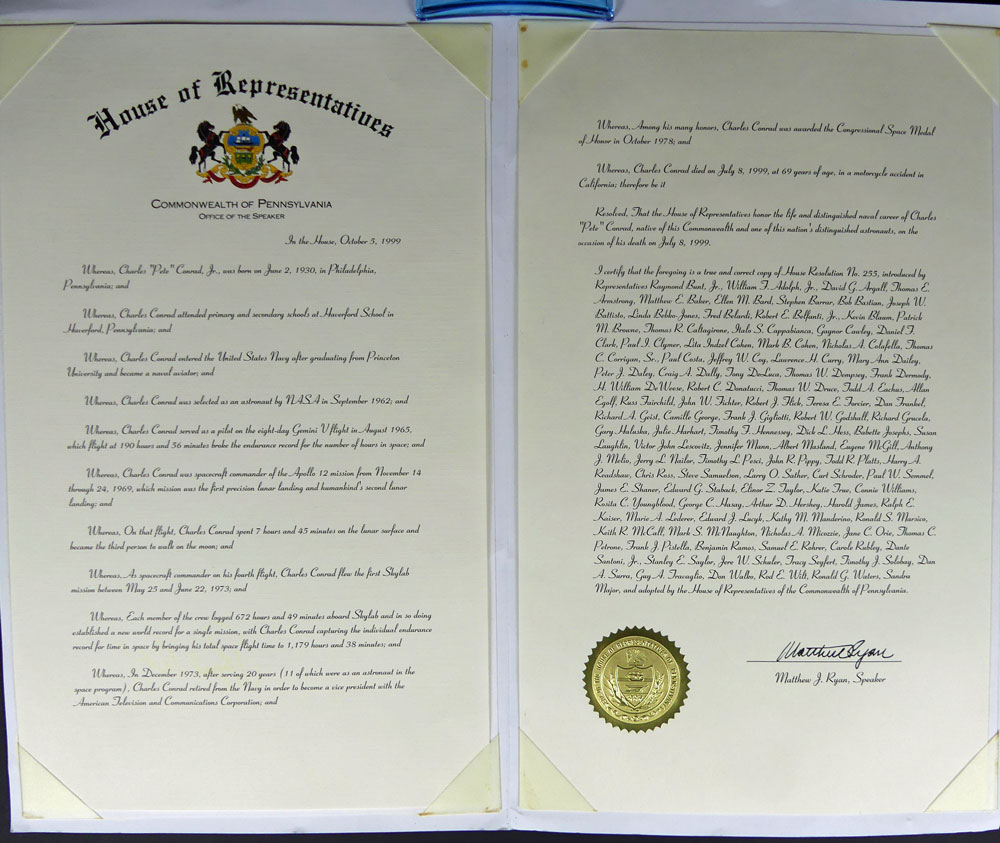 House of Representatives
COMMONWEALTH OF PENNSYLVANIA
OFFICE OF THE SPEAKER
In the House, October 5, 1999
Whereas, Charles "Pete" Conrad, Jr., was born on June 2, 1930, in Philadelphia,
Pennsylvania; and
Whereas, Charles Conrad attended primary and secondary schools at Haverford School in
Haverford, Pennsylvania; and
Whereas, Charles Conrad entered the United States Navy after graduating from Princeton
University and became a naval aviator; and
Whereas, Charles Conrad was selected as an astronaut by NASA in September 1962; and
Whereas, Charles Conrad served as a pilot on the eight-day Gemini V flight in August 1965,
which flight at 190 hours and 56 minutes broke the endurance record for the number of hours in space; and
Whereas, Charles Conrad was spacecraft commander of the Apollo 12 mission from November 14
through 24, 1969, which mission was the first precision lunar landing and humankind's second lunar
landing; and
Whereas, On that flight, Charles Conrad spent 7 hours and 45 minutes on the lunar surface and
became the third person to walk on the moon; and
Whereas, As spacecraft commander on his fourth flight, Charles Conrad flew the first Skylab
mission between May 25 and June 22, 1973; and
Whereas, Each member of the crew logged 672 hours and 49 minutes aboard Skylab and in so doing
established a new world record for a single mission, with Charles Conrad capturing the individual endurance
record for time in space by bringing his total space flight time to 1,179 hours and 38 minutes; and
Whereas, In December 1973, after serving 20 years (11 of which were as an astronaut in the
space program), Charles Conrad retired from the Navy in order to become a vice president with the
American Television and Communications Corporation; and
Whereas, Among his many honors, Charles Conrad was awarded the Congressional Space Medal
of Honor in October 1978; and
Whereas, Charles Conrad died on July 8, 1999, at 69 years of age, in a motorcycle accident in
California; therefore be it
Resolved, That the House of Representatives honor the life and distinguished naval career of Charles
"Pete" Conrad, native of this Commonwealth and one of this nation's distinguished astronauts, on the
occasion of his death on July 8, 1999.
I certify that the foregoing is a true and correct copy of House Resolution No. 255, introduced by
Representatives Raymond Bunt, Jr., William F. Adolph, Jr., David G. Argall, Thomas E.
Armstrong, Matthew E. Baker, Ellen M. Bard, Stephen Barrar, Bob Bastian, Joseph W.
Battisto, Linda Bebko-Jones, Fred Belardi, Robert E. Belfanti, Jr., Kevin Blaum, Patrick
M. Browne, Thomas R. Caltagirone, Italo S. Cappabianca, Gaynor Cawley, Daniel F.
Clark, Paul J. Clymer, Lita Indzel Cohen, Mark B. Cohen, Nicholas A. Colafella, Thomas
C. Corrigan, Sr., Paul Costa, Jeffrey W. Coy, Lawrence H. Curry, Mary Ann Dailey,
Peter J. Daley, Craig A. Dally, Tony DeLuca, Thomas W. Dempsey, Frank Dermody,
H. William DeWeese, Robert C. Donatucci, Thomas W. Druce, Todd A. Eachus, Allan
Egolf, Russ Fairchild, John W. Fichter, Robert J. Flick, Teresa E. Forcier, Dan Frankel,
Richard A. Geist, Camille George, Frank J. Gigliotti, Robert W. Godshall, Richard Grucela,
Gary Haluska, Julie Harhart, Timothy F. Hennessey, Dick L. Hess, Babette Josephs, Susan
Laughlin, Victor John Lescovitz, Jennifer Mann, Albert Masland, Eugene McGill, Anthony
J. Melio, Jerry L. Nailor, Timothy L. Pesci, John R. Pippy, Todd R. Platts, Harry A.
Readshaw, Chris Ross, Steve Samuelson, Larry O. Sather, Curt Schroder, Paul W. Semmel,
James E. Shaner, Edward G. Staback, Elinor Z. Taylor, Katie True, Connie Williams,
Rosita C. Youngblood, George C. Hasay, Arthur D. Hershey, Harold James, Ralph E.
Kaiser, Marie A. Lederer, Edward J. Lucyk, Kathy M. Manderino, Ronald S. Marsico,
Keith R. McCall, Mark S. McNaughton, Nicholas A. Micozzie, Jane C. Orie, Thomas C.
Petrone, Frank J. Pistella, Benjamin Ramos, Samuel E. Rohrer, Carole Rubley, Dante
Santoni, Jr., Stanley E. Saylor, Jere W. Schuler, Tracy Seyfert, Timothy J. Solobay, Dan
A. Surra, Guy A. Travaglio, Don Walko, Rod E. Wilt, Ronald G. Waters, Sandra
Major, and adopted by the House of Representatives of the Commonwealth of Pennsylvania.
Matthew J Ryan
Matthew J. Ryan, Speaker